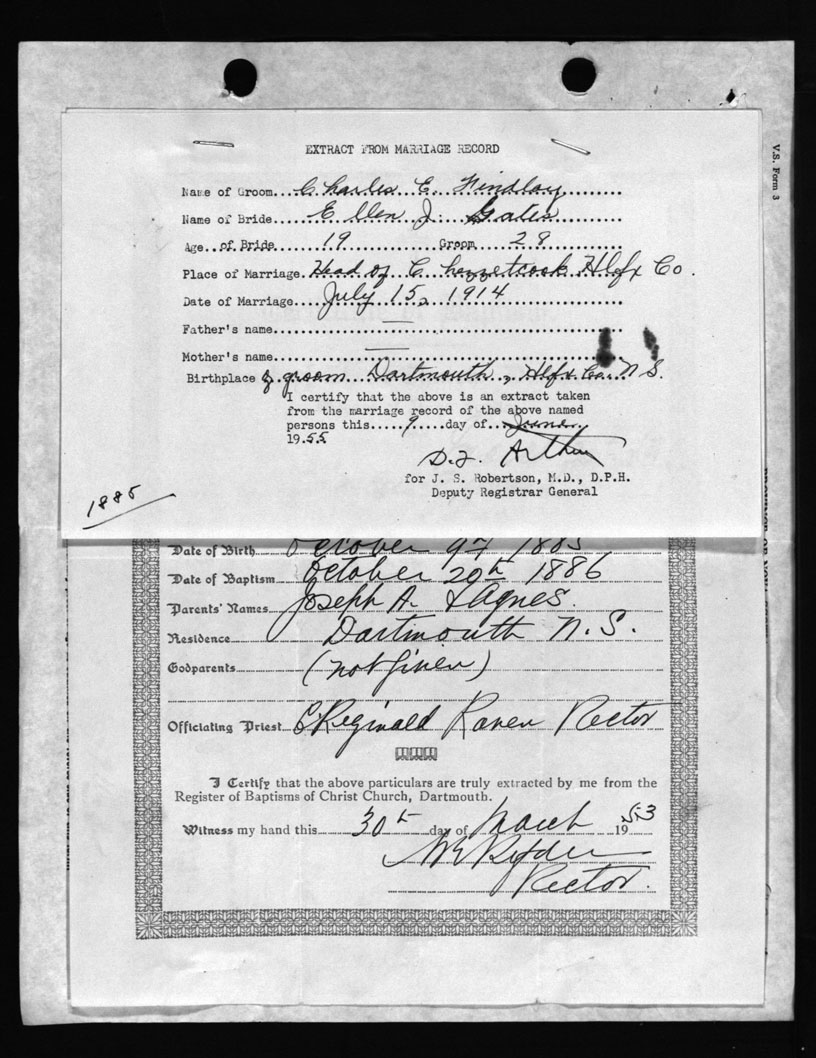 V.S. Form 3
EXTRACT FROM MARRIAGE RECORD
Name of Groom...Charles E. Findlay
Name of Bride...Ellen J. Gates
Age..of Bride...19...Groom...28
Place of Marriage.Head of Chezzetcook Hlfx Co.
Date of Marriage...July 15, 1914
Father's name...—
Mother's name...—
Birthplace of groom Dartmouth, Hlfx Co. N S.
I certify that the above is an extract taken
from the marriage record of the above named
persons this.....9....day of...
1955
D.F. Arthur
for J. S. Robertson, M.D., D.P.H.
Deputy Registrar General
1885
Date of Birth October 9th
Date of Baptism October 20th 1886
Parents' Names Joseph A. & Agnes.
Residence Dartmouth N.S.
Godparents (not given)
Officiating Priest Reginald Raven Rector
I Certify that the above particulars are truly extracted by me from the
Register of Baptisms of Christ Church, Dartmouth.
Witness my hand this 30th day of March 1953
Ryder
Rector.